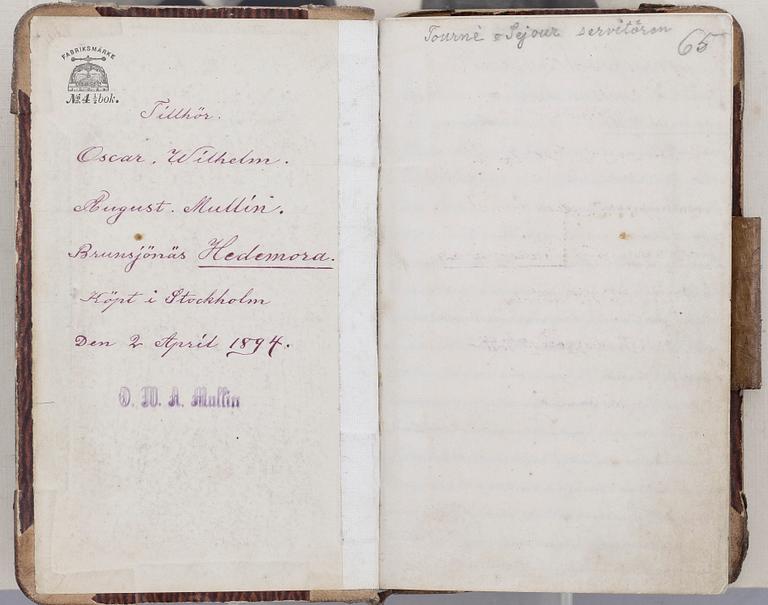 FABRIKSMÄRKE
No. 4½ bok.
Tillhör.
Oscar. Wilhelm.
August. Mullin.
Brunsjönäs Hedemora.
Köpt i Stockholm
Den 2 April 1894.
O. W. A. Mullin
Tourné o Sejour servitören
65